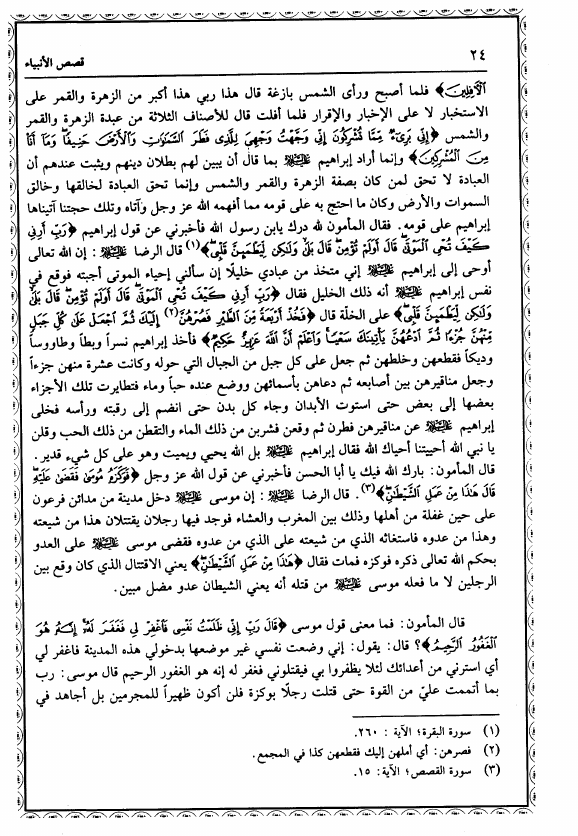 ٢٤
قصص الأنبياء
ٱلْآفِلِينَ﴾ فلما أصبح ورأى الشمس بازغة قال هذا ربي هذا أكبر من الزهرة والقمر على
الاستخبار لا على الإخبار والإقرار فلما أفلت قال للأصناف الثلاثة من عبدة الزهرة والقمر
والشمس ﴿إِنِّي بَرِيءٌ مِّمَّا تُشْرِكُونَ إِنِّي وَجَّهْتُ وَجْهِيَ لِلَّذِي فَطَرَ السَّمَوَاتِ وَالْأَرْضَ حَنِيفًا وَمَا أَنَا
مِنَ الْمُشْرِكِينَ﴾ وإنما أراد إبراهيم عليه السلام بما قال أن يبين لهم بطلان دينهم ويثبت عندهم أن
العبادة لا تحق لمن كان بصفة الزهرة والقمر والشمس وإنما تحق العبادة لخالقها وخالق
السموات والأرض وكان ما احتج به على قومه مما أفهمه الله عز وجل وآتاه وتلك حجتنا آتيناها
إبراهيم على قومه. فقال المأمون لله درك يابن رسول الله فأخبرني عن قول إبراهيم ﴿رَبِّ أَرِنِي
كَيْفَ تُحْيِ الْمَوْتَىٰ قَالَ أَوَلَمْ تُؤْمِن قَالَ بَلَىٰ وَلَٰكِن لِّيَطْمَئِنَّ قَلْبِي﴾(١) قال الرضا عليه السلام : إن الله تعالى
أوحى إلى إبراهيم عليه السلام إني متخذ من عبادي خليلًا إن سألني إحياء الموتى أجبته فوقع في
نفس إبراهيم عليه السلام أنه ذلك الخليل فقال ﴿رَبِّ أَرِنِي كَيْفَ تُحْيِ الْمَوْتَىٰ قَالَ أَوَلَمْ تُؤْمِن قَالَ بَلَىٰ
وَلَٰكِن لِّيَطْمَئِنَّ قَلْبِي﴾ على الخلّة قال ﴿فَخُذْ أَرْبَعَةً مِّنَ الطَّيْرِ فَصُرْهُنَّ(٢) إِلَيْكَ ثُمَّ اجْعَلْ عَلَىٰ كُلِّ جَبَلٍ
مِّنْهُنَّ جُزْءًا ثُمَّ ادْعُهُنَّ يَأْتِينَكَ سَعْيًا وَاعْلَمْ أَنَّ اللَّهَ عَزِيزٌ حَكِيمٌ﴾ فأخذ إبراهيم نسراً وبطاً وطاووساً
وديكاً فقطعهن وخلطهن ثم جعل على كل جبل من الجبال التي حوله وكانت عشرة منهن جزءاً
وجعل مناقيرهن بين أصابعه ثم دعاهن بأسمائهن ووضع عنده حباً وماء فتطايرت تلك الأجزاء
بعضها إلى بعض حتى استوت الأبدان وجاء كل بدن حتى انضم إلى رقبته ورأسه فخلى
إبراهيم عليه السلام عن مناقيرهن فطرن ثم وقعن فشربن من ذلك الماء والتقطن من ذلك الحب وقلن
يا نبي الله أحييتنا أحياك الله فقال إبراهيم عليه السلام بل الله يحيي ويميت وهو على كل شيء قدير.
قال المأمون: بارك الله فيك يا أبا الحسن فأخبرني عن قول الله عز وجل ﴿فَوَكَزَهُ مُوسَىٰ فَقَضَىٰ عَلَيْهِ
قَالَ هَٰذَا مِنْ عَمَلِ الشَّيْطَٰنِ﴾(٣). قال الرضا عليه السلام : إن موسى عليه السلام دخل مدينة من مدائن فرعون
على حين غفلة من أهلها وذلك بين المغرب والعشاء فوجد فيها رجلان يقتتلان هذا من شيعته
وهذا من عدوه فاستغاثه الذي من شيعته على الذي من عدوه فقضى موسى عليه السلام على العدو
بحكم الله تعالى ذكره فوكزه فمات فقال ﴿هَٰذَا مِنْ عَمَلِ الشَّيْطَٰنِ﴾ يعني الاقتتال الذي كان وقع بين
الرجلين لا ما فعله موسى عليه السلام من قتله أنه يعني الشيطان عدو مضل مبين.
قال المأمون: فما معنى قول موسى ﴿قَالَ رَبِّ إِنِّي ظَلَمْتُ نَفْسِي فَاغْفِرْ لِي فَغَفَرَ لَهُ إِنَّهُ هُوَ
الْغَفُورُ الرَّحِيمُ﴾؟ قال: يقول: إني وضعت نفسي غير موضعها بدخولي هذه المدينة فاغفر لي
أي استرني من أعدائك لئلا يظفروا بي فيقتلوني فغفر له إنه هو الغفور الرحيم قال موسى: رب
بما أتممت عليّ من القوة حتى قتلت رجلًا بوكزة فلن أكون ظهيراً للمجرمين بل أجاهد في
(١) سورة البقرة؛ الآية : ٢٦٠.
(٢) فصرهن: أي أملهن إليك فقطعهن كذا في المجمع.
(٣) سورة القصص؛ الآية: ١٥.